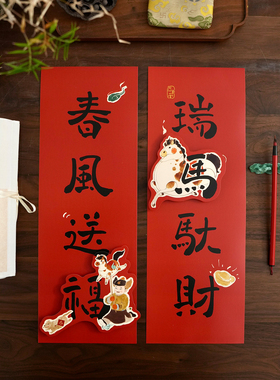 瑞馬馱財
春風送福